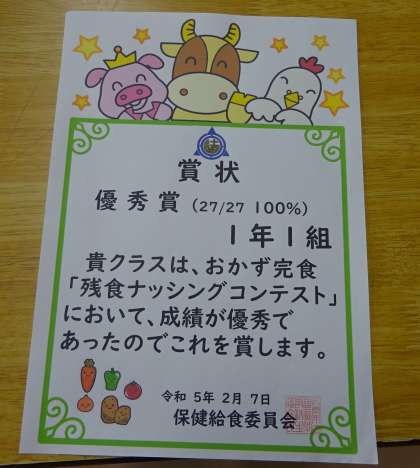 賞状
優秀賞 (27/27 100%)
1年1組
貴クラスは、おかず完食
「残食ナッシングコンテスト」
において、成績が優秀で
あったのでこれを賞します。
令和 5年 2月 7日
保健給食委員会